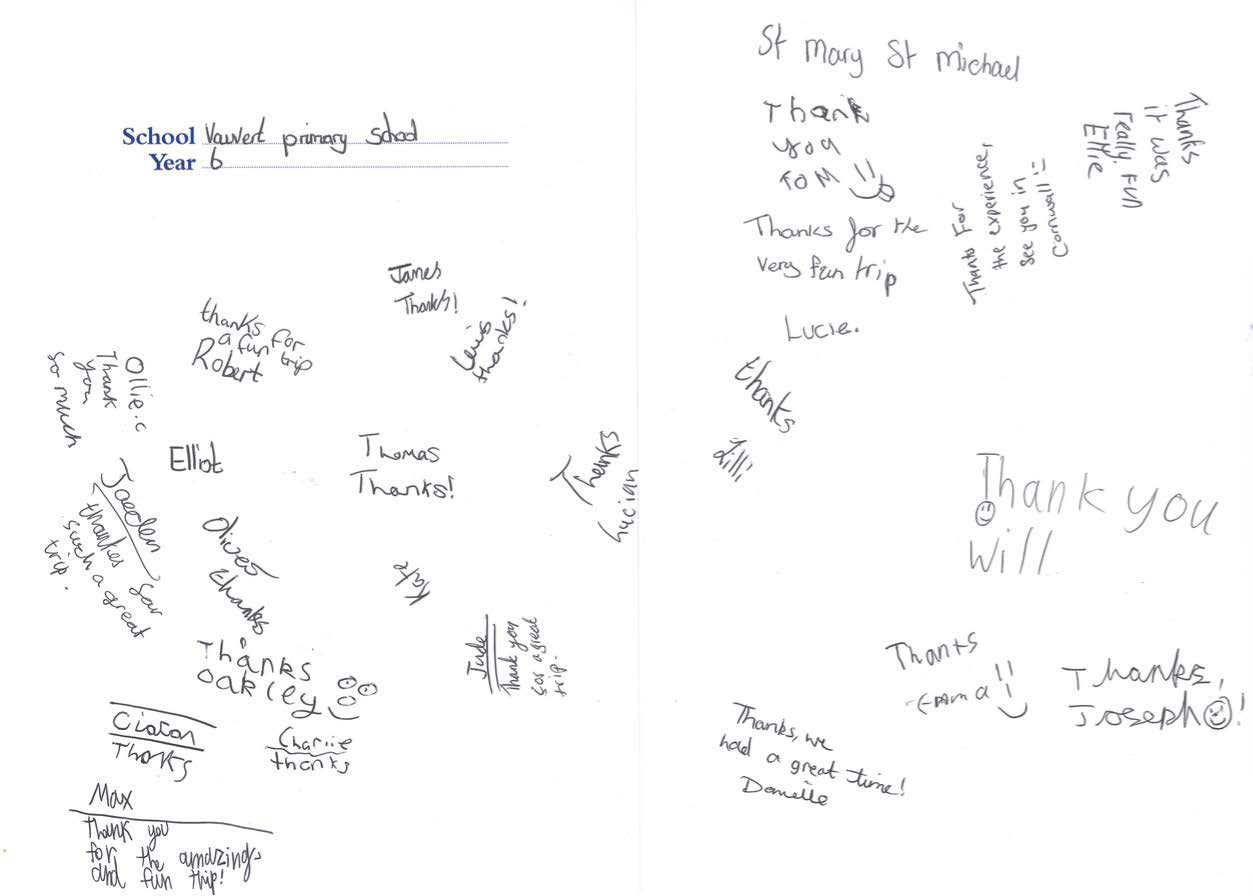 School Vauvert primary school
Year 6
James
Thanks!
Lewis
thanks!
thanks for
a fun trip
Robert
Ollie.c
Thank
you
so much
Elliot
Thomas
Thanks!
Thanks
Lucian
Jaeden
thankes for
such a great
trip.
Oliver
thanks
Kate
Jude
Thank you
for a great
trip.
Thanks
Oakley
Thanks
Charlie
thanks
Max
Thank you
for the amazing
and fun trip!
St Mary St Michael
Thank
you
TOM
Thanks it was
really fun
Ellie
Thanks For
the experience,
see you in
Cornwall :-
Thanks for the
very fun trip
Lucie.
thanks
Lilli
Thank you
Will
Thanks
Emma
Thanks,
Joseph!
Thanks, we
had a great time!
Danielle